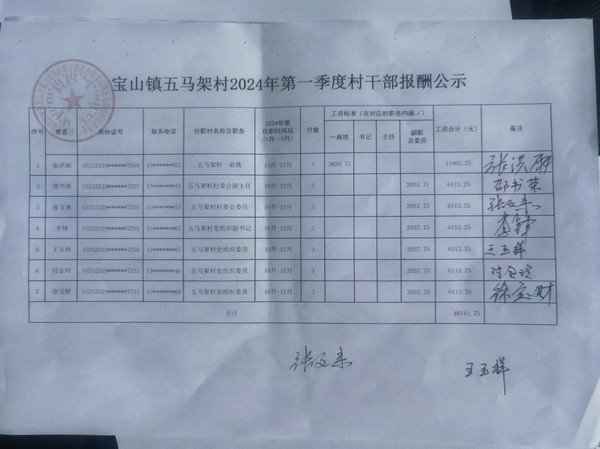 宝山镇五马架村2024年第一季度村干部报酬公示
序号 姓名 身份证号 联系电话 任职村名称及职务 2024年度任职时间段(1月—3月) 月数 工资标准(在对应的职务内画√) 工资合计(元) 备注
一肩挑 书记 主任 副职及委员
1 五马架村一肩挑 10月-12月 3 3820.75 11462.25 张洪雨
2 五马架村村委会副主任 10月-12月 3 2037.75 6113.25 邵书荣
3 五马架村村委会委员 10月-12月 3 2037.75 6113.25 张文来
4 李锋 五马架村党组织副书记 10月-12月 3 2037.75 6113.25 李锋
5 王玉祥 五马架村党组织委员 10月-12月 3 2037.75 6113.25 王玉祥
6 付金玲 五马架村党组织委员 10月-12月 3 2037.75 6113.25 付金玲
7 徐宝财 五马架村党组织委员 10月-12月 3 2037.75 6113.25 徐宝财
合计 48141.75
张文来 王玉祥